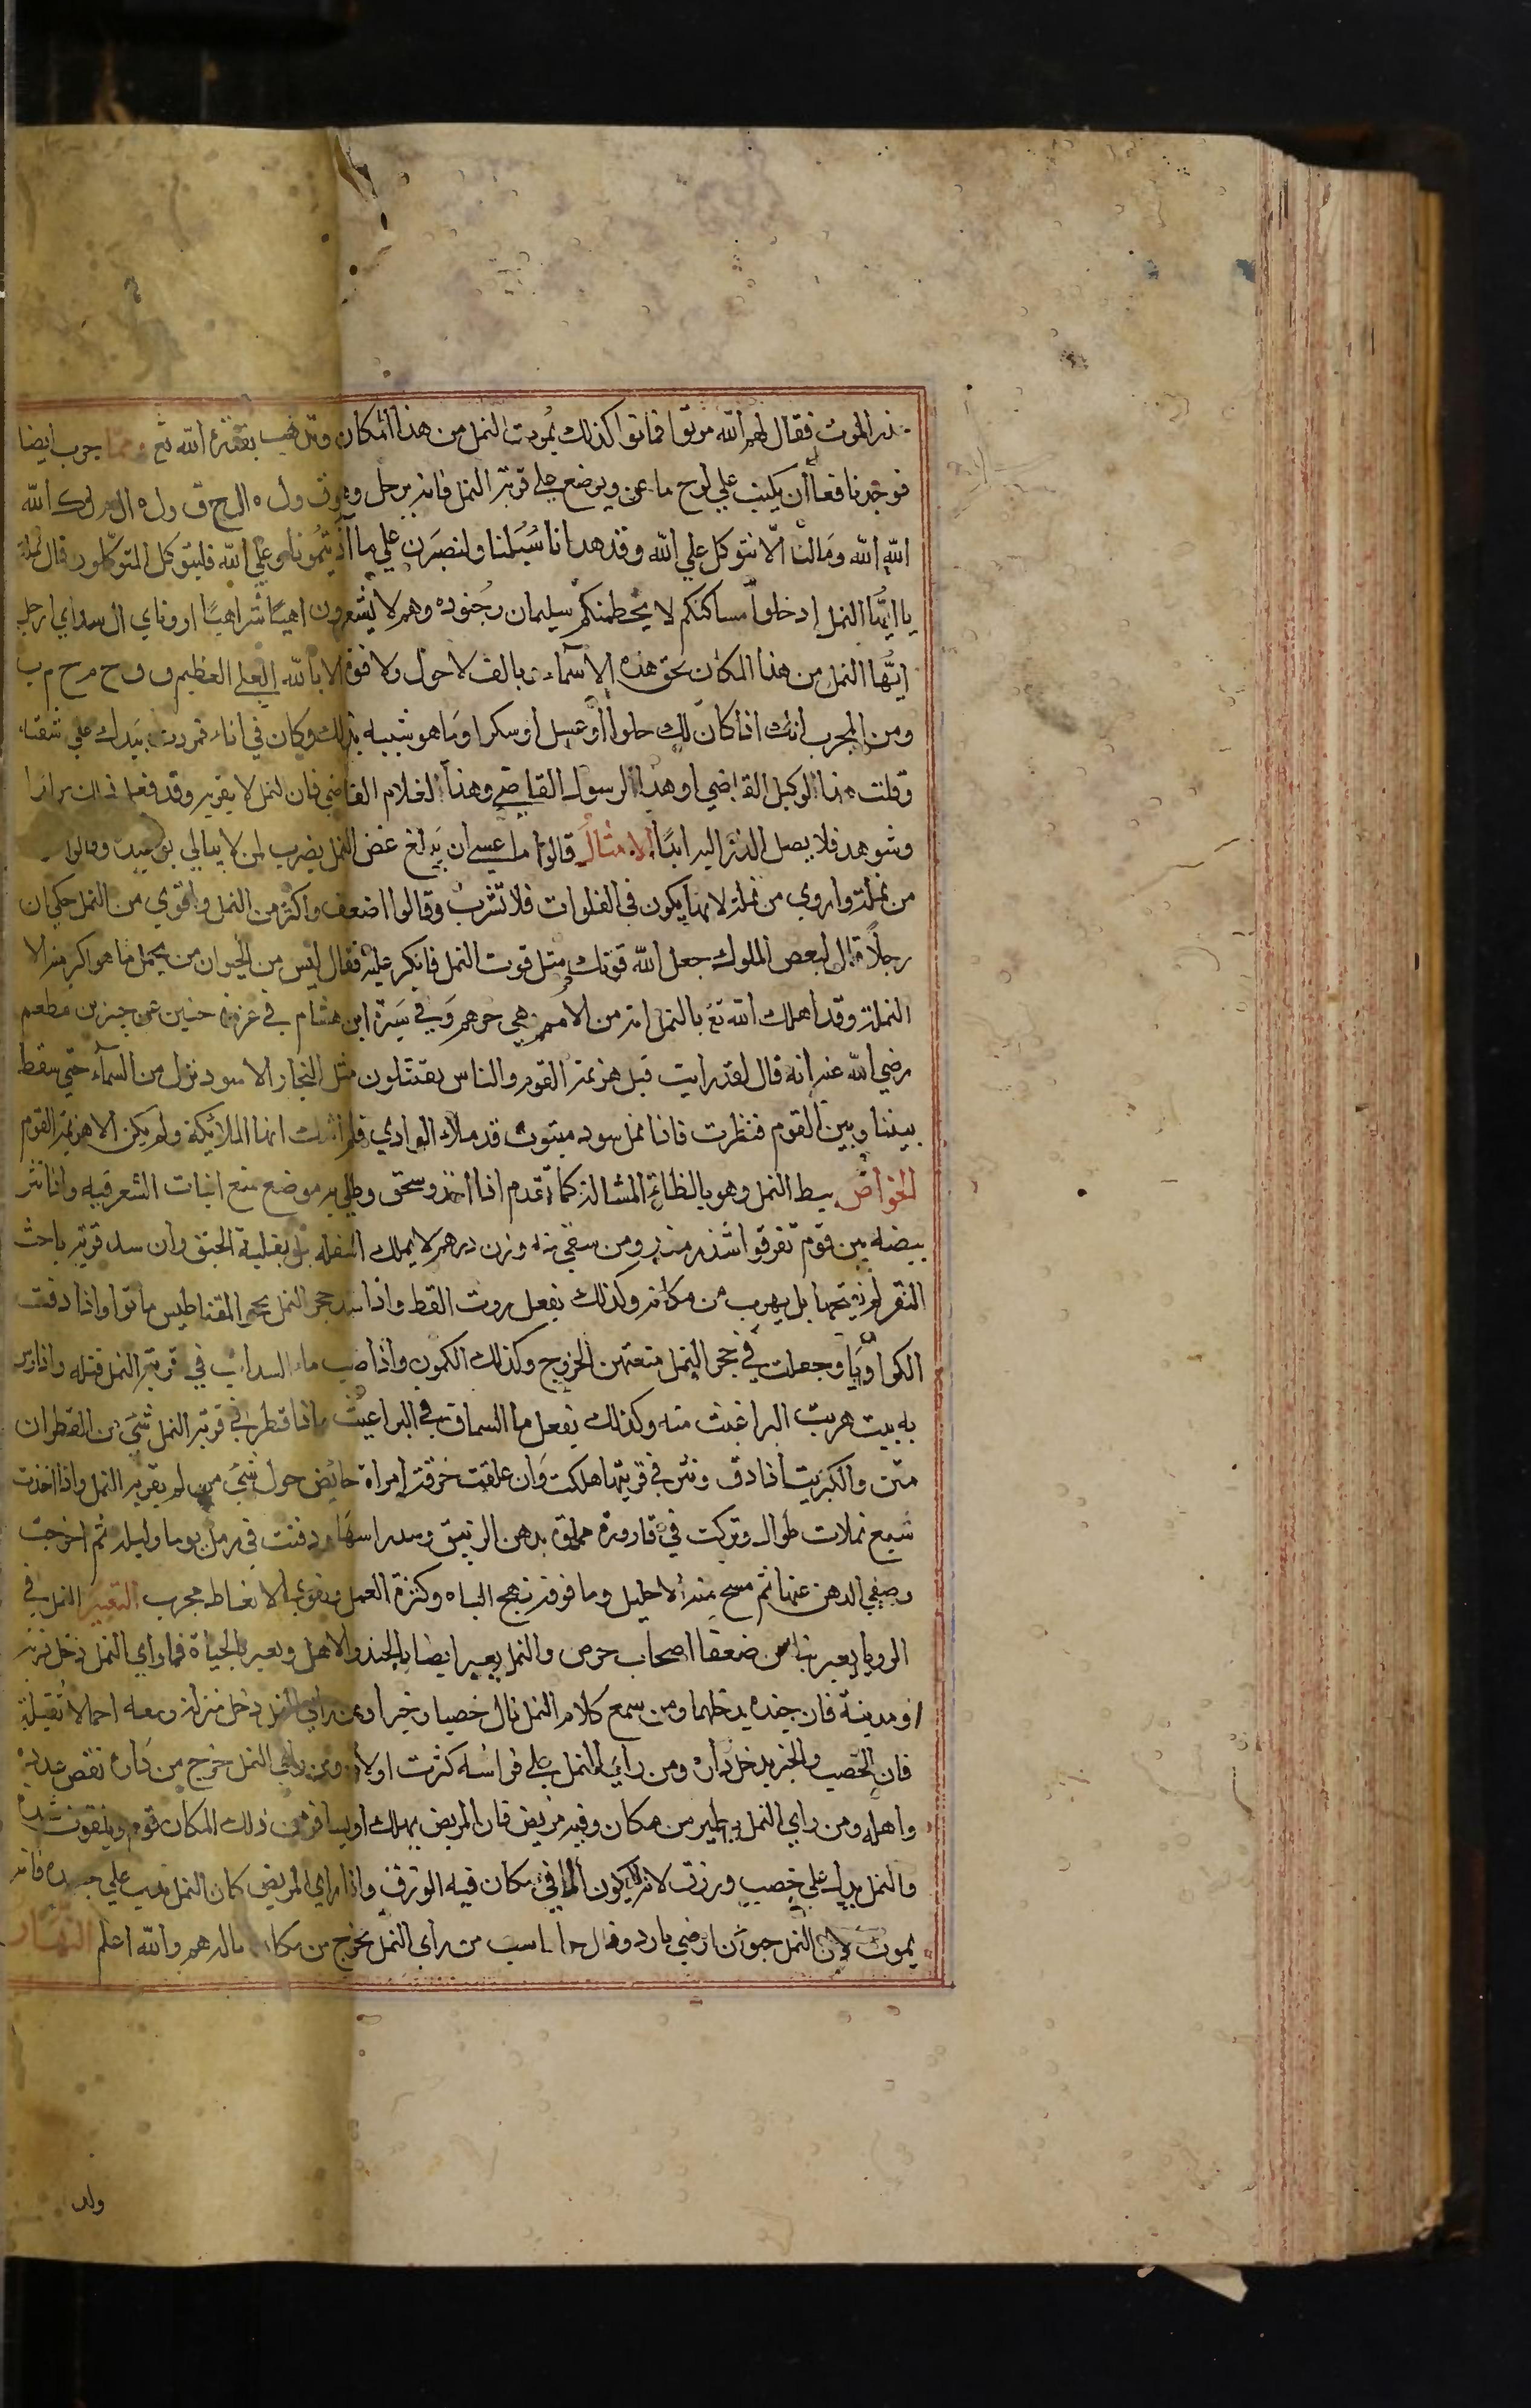 حذر الموت فقال لهم الله موتوا فماتوا كذلك يموت النمل من هذا المكان ويذهب بقدرة الله تع ومما جرب ايضا
فوجد نافعا أن يكتب علي لوح ماعز ويوضع علي قرية النمل فانه يرحل وهو ق ول ه ال ح ق ول ه ال م ل ك الله
الله الله وَمالنا الّا نتوكل علي الله وقد هدانا سُبُلنا ولنصبَرن علي ما آذيتمونا وعلي الله فليتوكل المتوكلون قال نملة
يا ايّها النمل إدخلوا مساكنكم لا يحطمنكم سليمان وجُنوده وهم لا يشعرون اهيًا شراهيًا ادوناي ال سداي ارحل
ايّها النمل من هذا المكان بحق هذه الاسماء بالف لا حول ولا قوة الا بالله العلي العظيم ف ق ج م خ م ب
ومن المجرب انك اذا كان لك حلوا أو عسل أو سكر اوما هو شبيه بذلك وكان في اناء فمررت بيدك علي شفتاه
وقلت هذا لوكيل القاضي او هذا لرسول القاضي وهذا لغلام القاضي فان النمل لا يقربه وقد فعل ذلك مرارا
وشوهد فلا يصل الذر اليه ابدًا الامثال قالوا ما عسي ان يبلغ عض النمل يضرب لمن لا يبالي بوعيده وقالوا
من نملة واروي من نملة لانها يكون في الفلوات فلا تشرب وقالوا اضعف واكثر من النمل واقوي من النمل حكي ان
رجلًا قال لبعض الملوك جعل الله قوتك مثل قوت النمل فانكر عليه فقال ليس من الحيوان من يحمل ما هو اكبر منه الا
النملة وقد اهلك الله تع بالنمل امة من الامم هي جرهم وَفي سَيرة ابن هشام في غزوة حنين عن جبير بن مطعم
رضي الله عنه انه قال لقد رايت قبل هزيمة القوم والناس يقتتلون مثل النجاد الاسود نزل من السمآء حتي سقط
بيننا وبين القوم فنظرت فاذا نمل سود مبثوث قد ملأ الوادي فلم اشك انها الملائكة ولم يكن الا هزيمة القوم
الخواص بيط النمل وهو بالظاء المشالة كما تقدم اذا اخذ وسحق وطلي به موضع منع انبات الشعر فيه واذا نثر
بيضه بين قوم تفرقوا شذر مذر ومن سقي منه وزن درهم لا يملك اسفله بل يغلبه الحبق وان سد قريته باخثا
البقر لم يفتحها بل يهرب من مكانه وكذلك يفعل روث القط واذا سد حجر النمل بحجر المقناطيس ماتوا واذا دقت
الكراويا وجعلت في حجر النمل منعتهن الخروج وكذلك الكمون واذا صب ماء السداب في قرية النمل قتله واذا رش
به بيت هربت البراغيث منه وكذلك يفعل ما السماق في البراغيث واذا قطر في قرية النمل شي من القطران
متن والكبريت اذا دق ونثر في قريتها هلكت وَان علقت خرقة امراة حايض حول شئ من لم يقربه النمل واذا اخذت
سبع نملات طوال وتركت في قارورة مملوة بدهن الزنبق وسد راسها ودفنت في زبل يوما وليلة ثم اخرجت
وصفي الدهن عنها ثم مسح منه الاحليل وما فوقه نهيج الباه وكثرة العمل ويقوي الانعاط مجرب التعبير النمل في
الرويا يعبر بناس ضعفا اصحاب حرص والنمل يعبر ايضا بالجند والاهل ويعبر بالحياة فما رأي النمل دخل قرية
او مدينة فان جنده يدخلها ومن سمع كلام النمل نال خصبا وخيرا ومن راي النمل دخل منزله ومعه احمالا ثقيلة
فان الخصب والخير يدخل داره ومن رأي النمل علي فراشه كثرت اولاده ومن رأي النمل خرج من داره نقص عدده
واهله ومن راي النمل يطير من مكان وفيه مريض فان المريض يهلك او يسافر من ذلك المكان قوم ويلقون شدة
والنمل يدل علي خصب ورزق لانه لا يكون الا في مكان فيه الرزق واذا راي المريض كان النمل يدب علي جسده فانه
يموت لان النمل حيوان ارضي بارد وقال جاماسب من راي النمل يخرج من مكانه ناله هم والله اعلم النهار
ولد